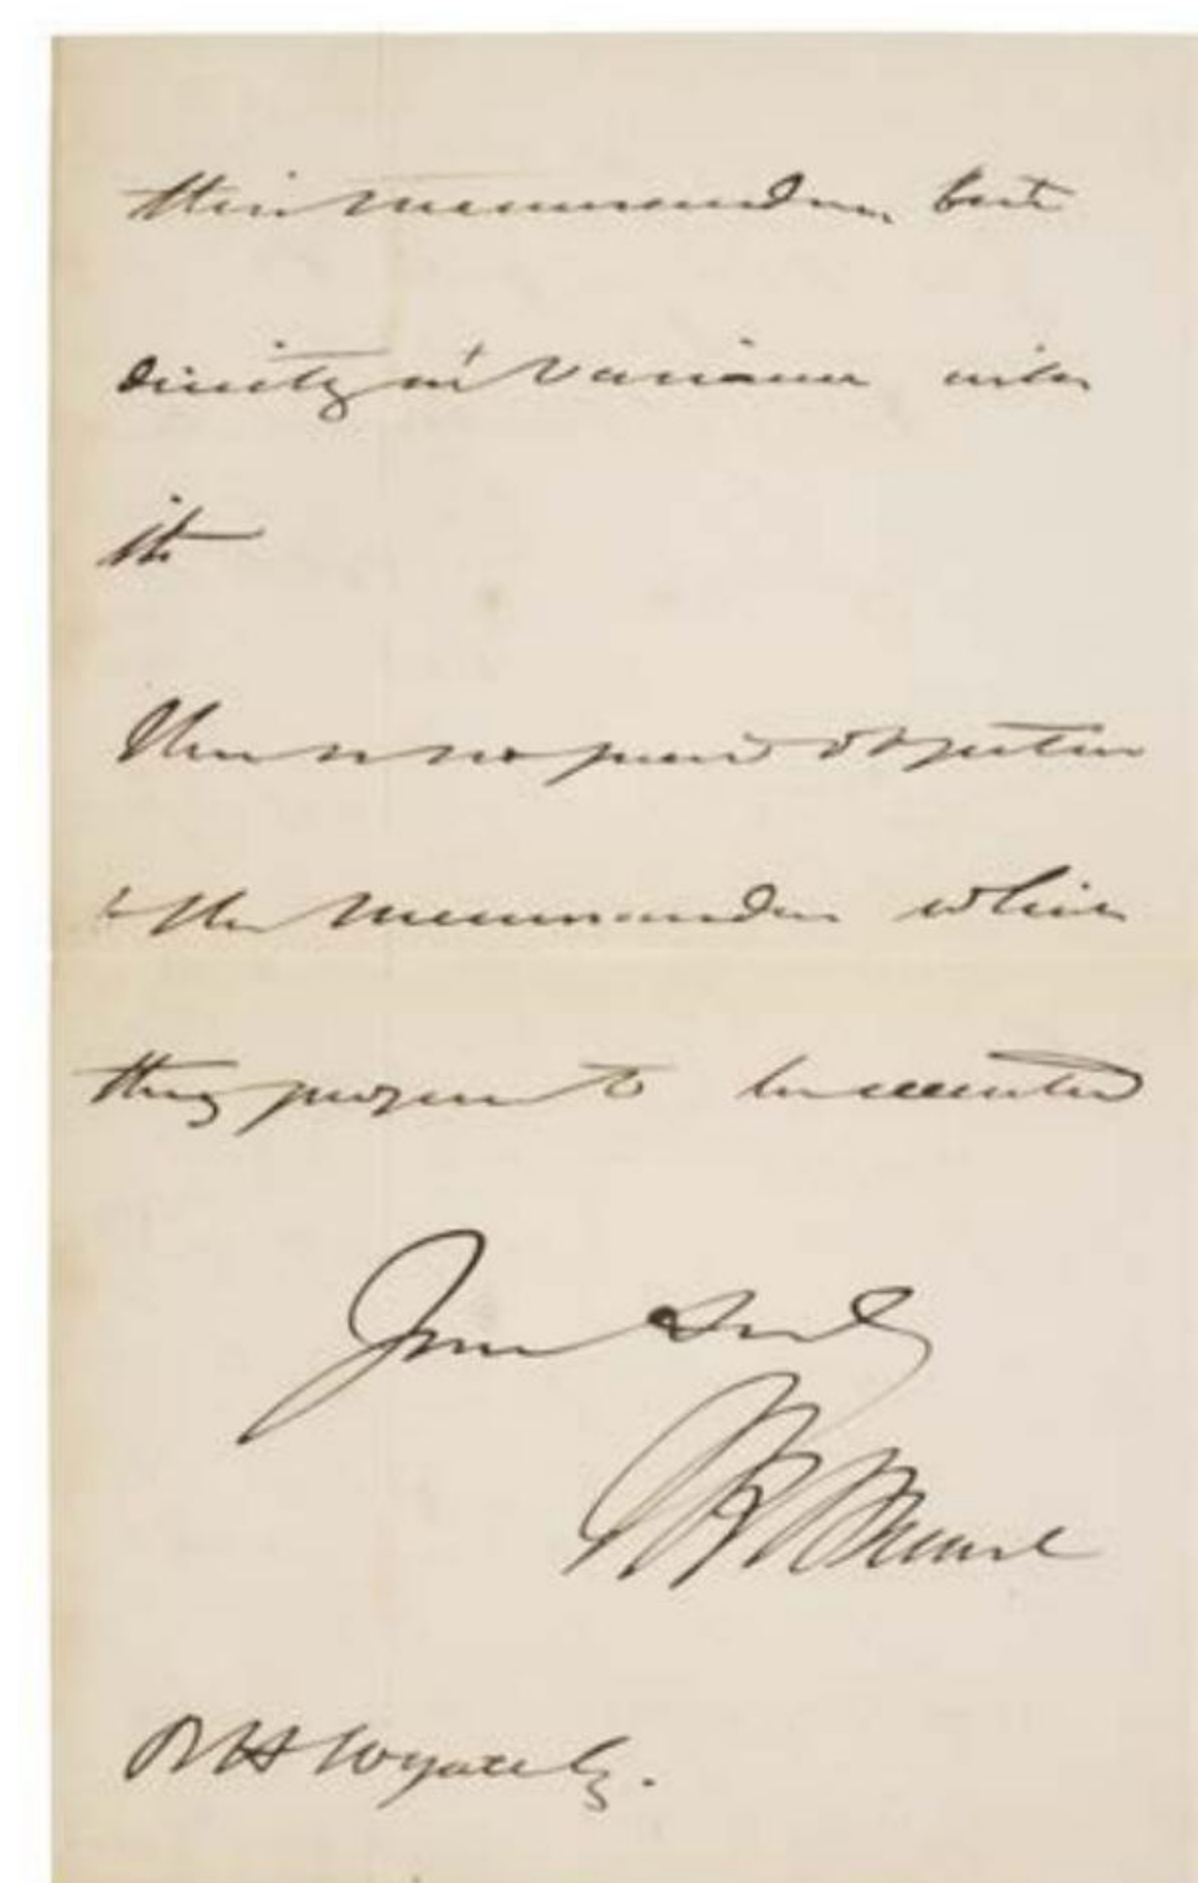 their memorandum but
directly at variance with
it
There is no objection
to the memorandum which
they propose to be executed
Yours truly
I K Brunel
R H Wyatt Esq.